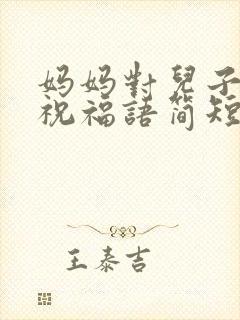 妈妈對兒子
祝福語简短
王泰吉